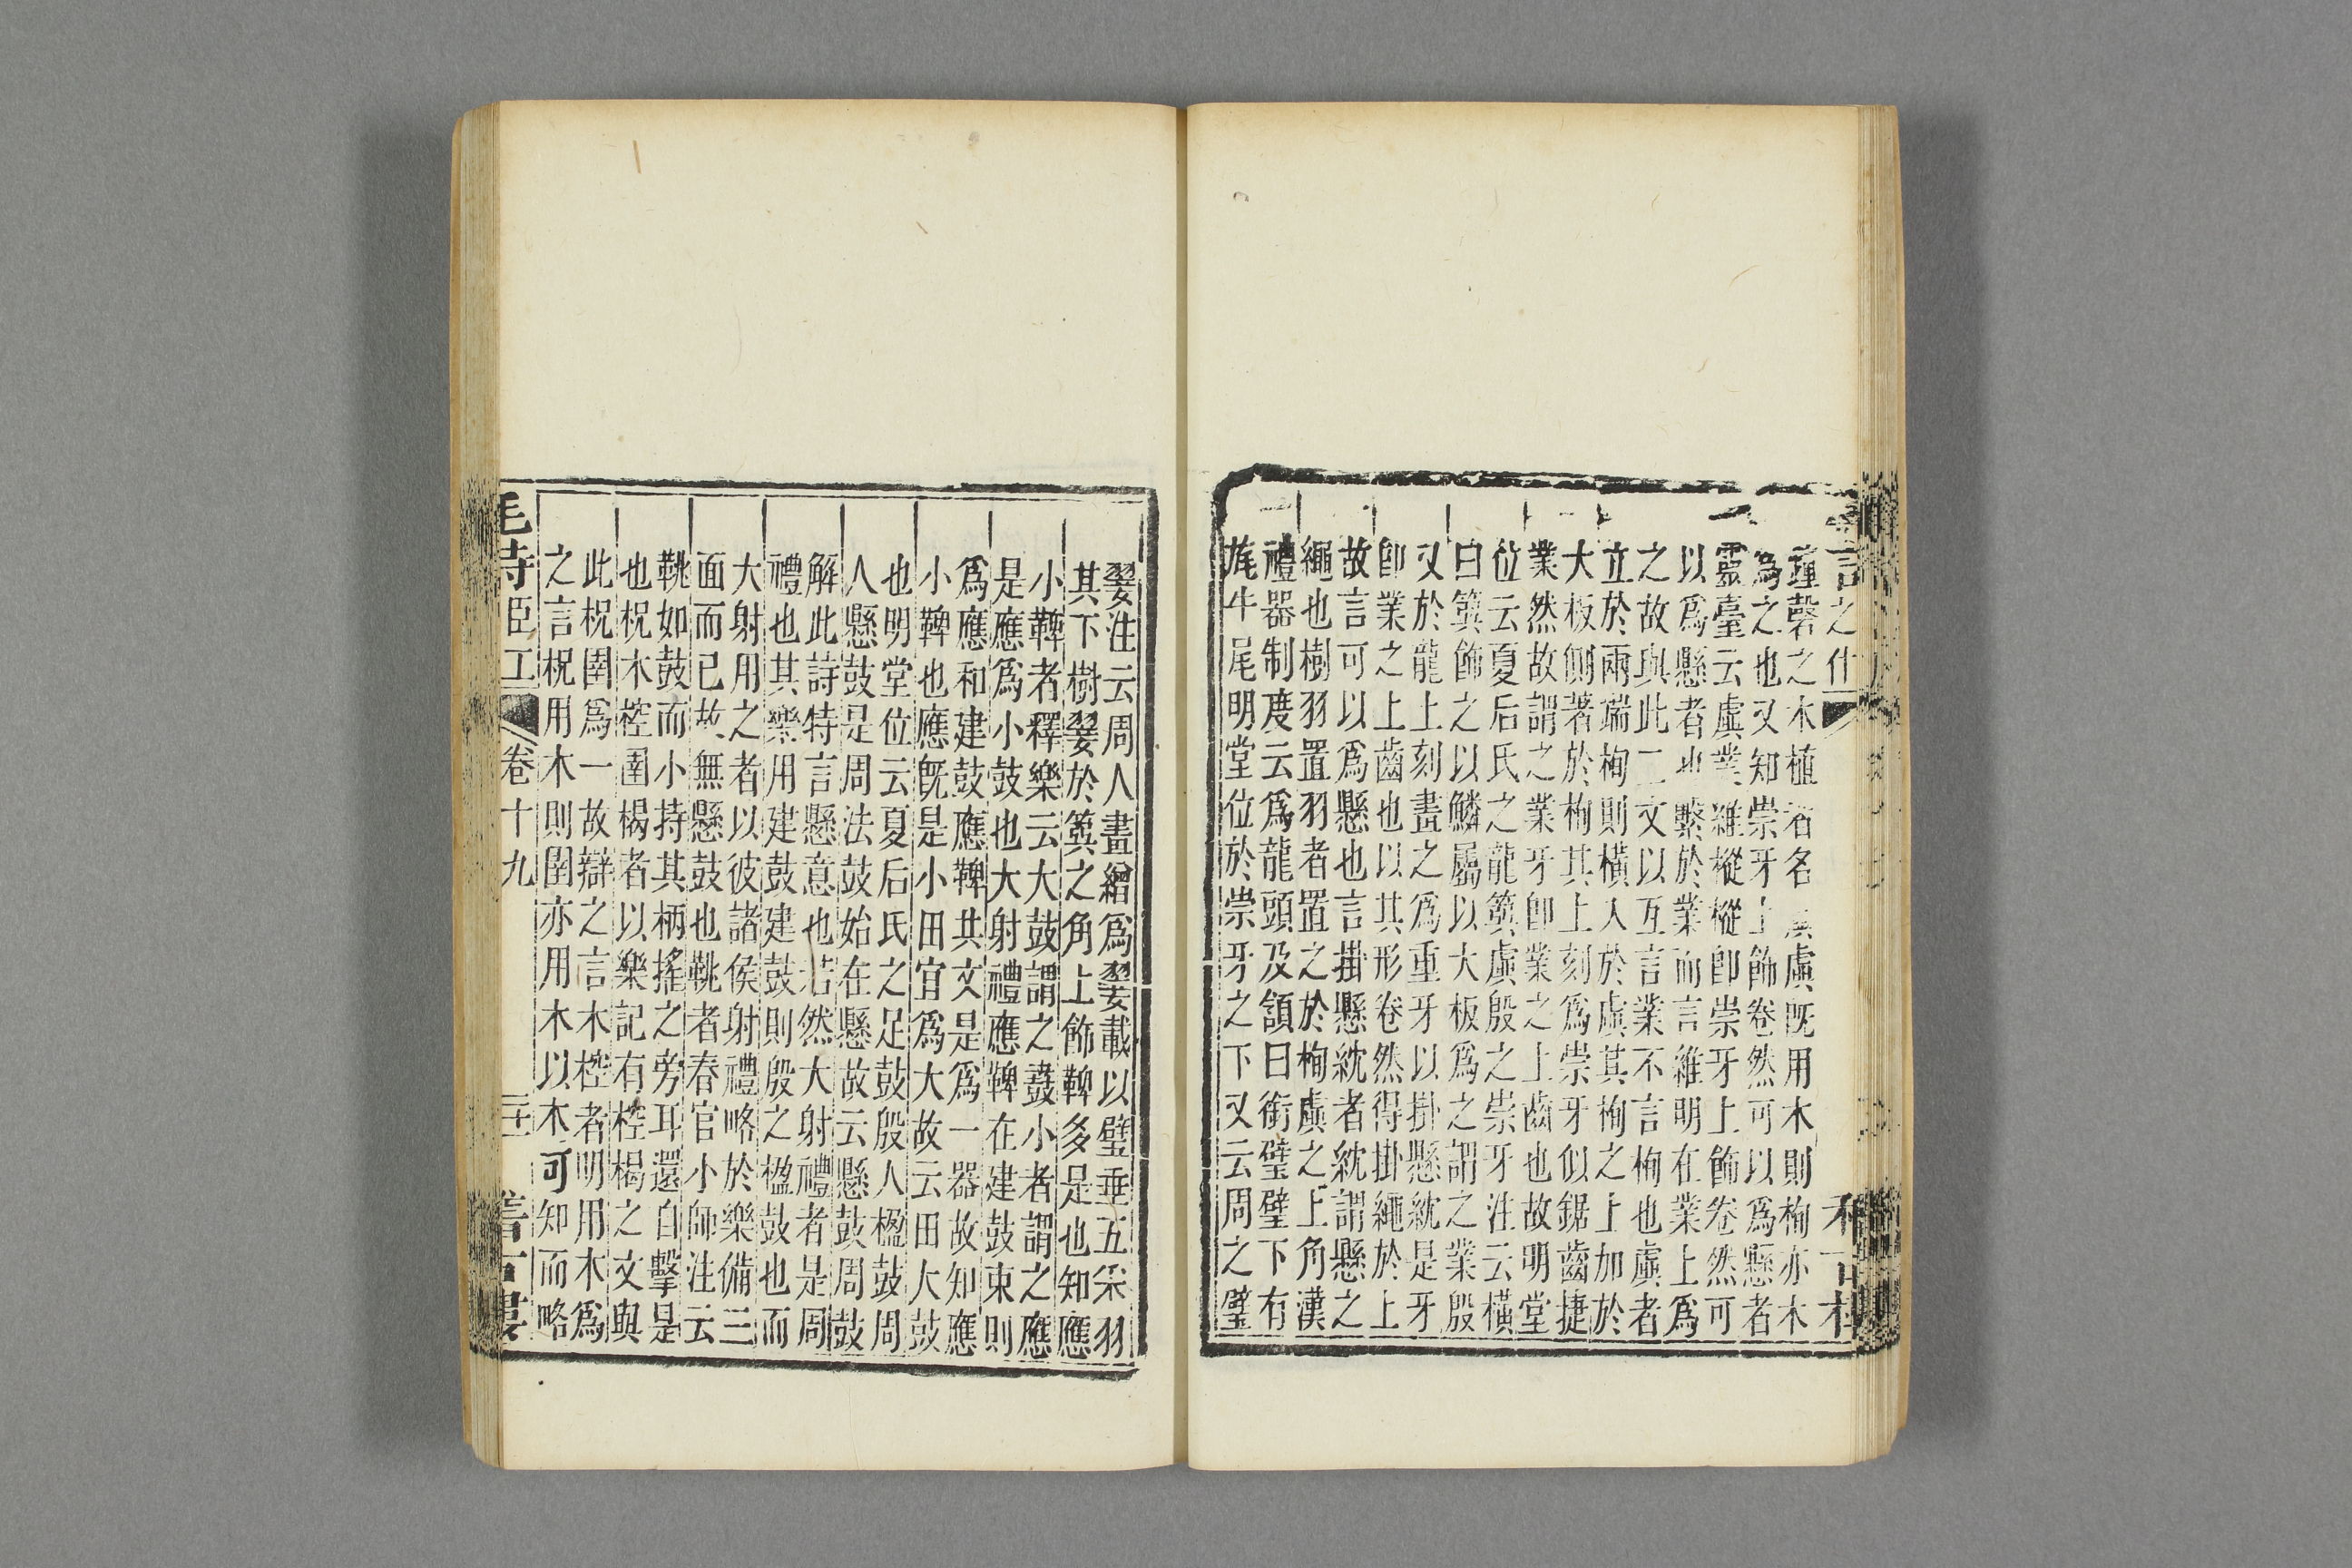 鍾磬之木植者名爲虡既用木則栒亦木
為之也又知崇牙上飾卷然可以爲懸者
靈臺云虡業維樅樅即崇牙上飾卷然可
以爲懸者也繫於業而言維明在業上爲
之故與此二文以互言業不言栒也虡者
立於兩端栒則橫入於虡其栒之上加於
大板側著於栒其上刻爲崇牙似鋸齒捷
業然故謂之業牙即業之上齒也故明堂
位云夏后氏之龍簨虡殷之崇牙注云橫
曰簨飾之以鱗屬以大板爲之謂之業殷
又於龍上刻畫之爲重牙以掛懸紞是牙
即業之上齒也以其形卷然得掛繩於上
故言可以爲懸也言掛懸紞者紞謂懸之
繩也樹羽置羽者置之於栒虡之上角漢
禮器制度云爲龍頭及頷曰銜璧璧下有
旄牛尾明堂位於崇牙之下又云周之璧
翣注云周人畫繒爲翣載以璧垂五采羽
其下樹翣於簨之角上飾鞞多是也知應
小鞞者釋樂云大鼓謂之鼖小者謂之應
是應爲小鼓也大射禮應鞞在建鼓東則
爲應和建鼓應鞞共文是爲一器故知應
小鞞也應既是小田宜爲大故云田大鼓
也明堂位云夏后氏之足鼓殷人楹鼓周
人懸鼓是周法鼓始在懸故云懸鼓周鼓
解此詩特言懸意也若然大射禮者是周
禮也其樂用建鼓建鼓則殷之楹鼓也而
大射用之者以彼諸侯射禮略於樂備三
面而已故無懸鼓也鞉者春官小師注云
鞉如鼓而小持其柄搖之旁耳還自擊是
也柷木椌圉楬者以樂記有椌楬之文與
此柷圉爲一故辯之言木椌者明用木爲
之言柷用木則圉亦用木以木可知而略
毛詩臣工 卷十九